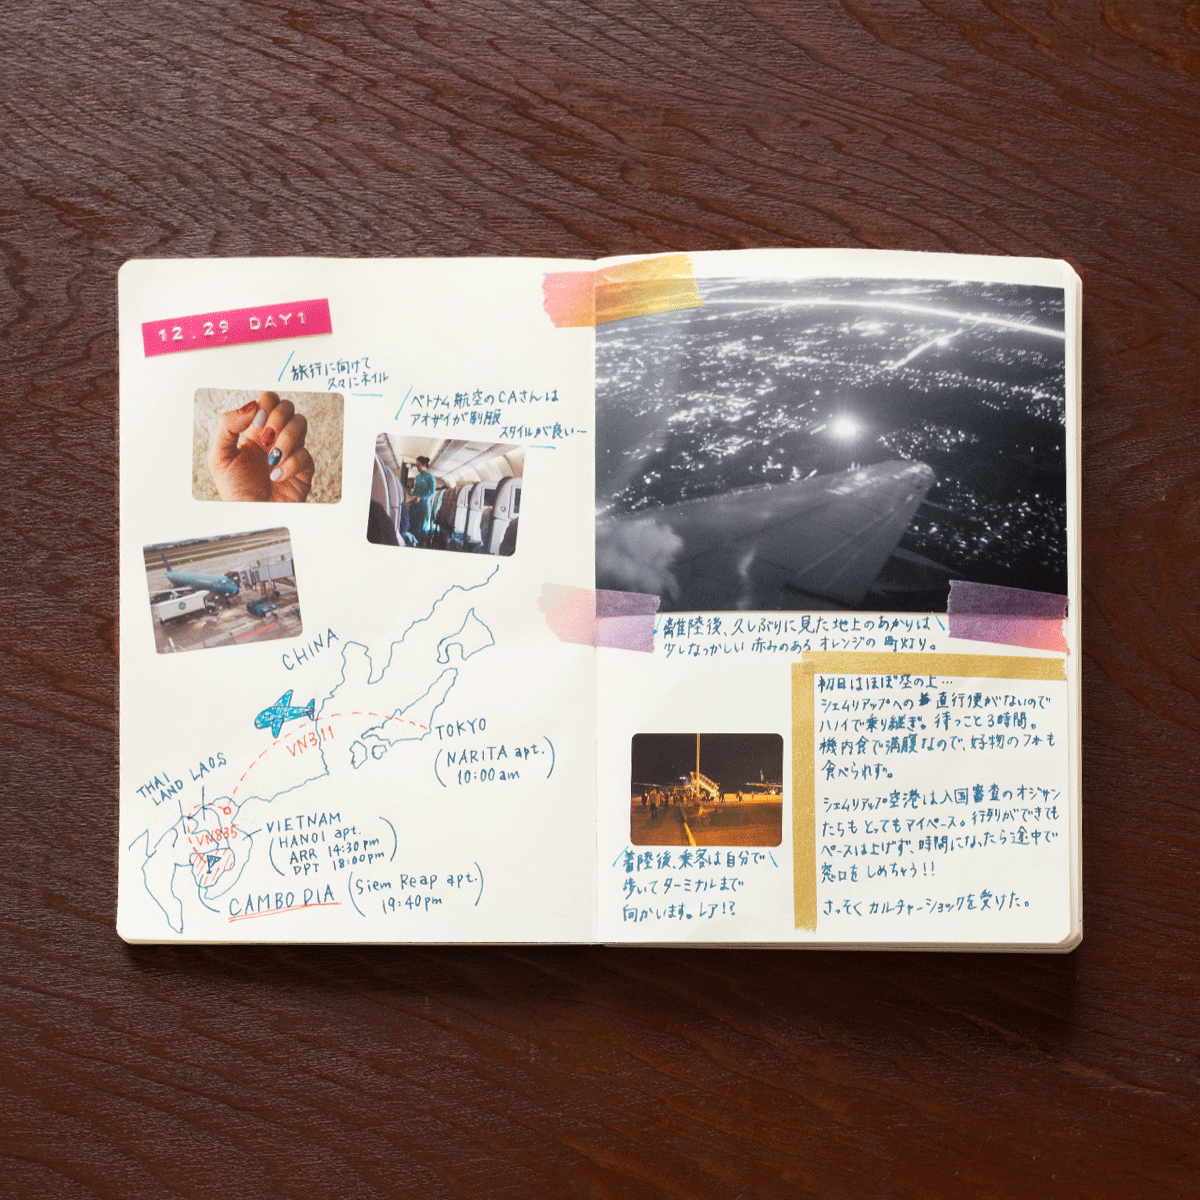 12.29 DAY1
旅行に向けて
久々にネイル
ベトナム航空のCAさんは
アオザイが制服
スタイルが良い…
CHINA
VN311
TOKYO
(NARITA apt.)
10:00am
THAI
LAND
LAOS
VN835
VIETNAM
(HANOI apt.
ARR 14:30pm
DPT 18:00pm)
P
CAMBODIA
(Siem Reap apt.)
19:40pm
離陸後、久しぶりに見た地上のあかりは
少しなつかしい 赤みのある オレンジの 町灯り。
着陸後、乗客は自分で
歩いてターミナルまで
向かいます。レア!?
初日はほぼ空の上…
シェムリアップへの直行便がないので
ハノイで乗り継ぎ。待つこと3時間。
機内食で満腹なので、好物のフォも
食べられず。
シェムリアップ空港は入国審査のオジサン
たちも とってもアイペース。行列ができても
ペースは上げず、時間になったら途中で
窓口を しめちゃう!!
さっそく カルチャーショックを受けた。